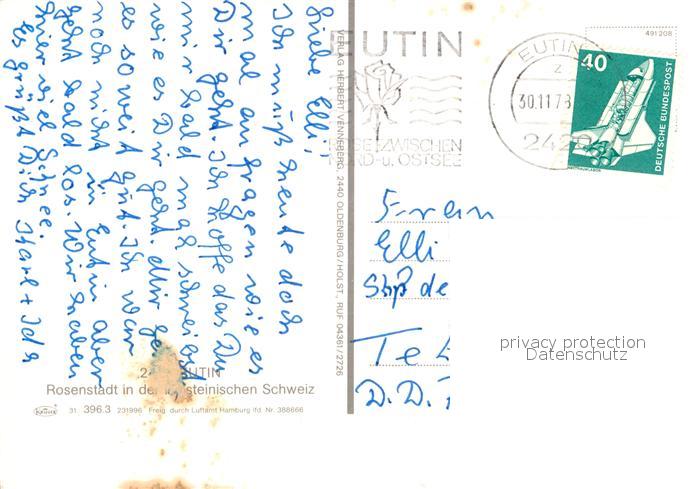 Liebe Elli,
Ich muß heute doch
mal anfragen wie es
Dir geht. Ich hoffe das Du
mir bald mal schreibst
wie es Dir geht. Mir geht
es so weit gut. Ich war
noch nicht in Eutin aber
geht bald los. Wir haben
hier viel Schnee.
Es grüßt Dich
VERLAG HERBERT VENNEBERG, 2440 OLDENBURG/HOLST., RUF 04361/2726
EUTIN
ROSE ZWISCHEN
NORD- u. OSTSEE
EUTIN
z
30.11.78
242
491208
40
DEUTSCHE BUNDESPOST
Frau
Elli
Te
D.D.
privacy protection
Datenschutz
EUTIN
Rosenstadt in der holsteinischen Schweiz
KRÜGER
31. 396.3 231996 Freig. durch Luftamt Hamburg lfd. Nr. 388666